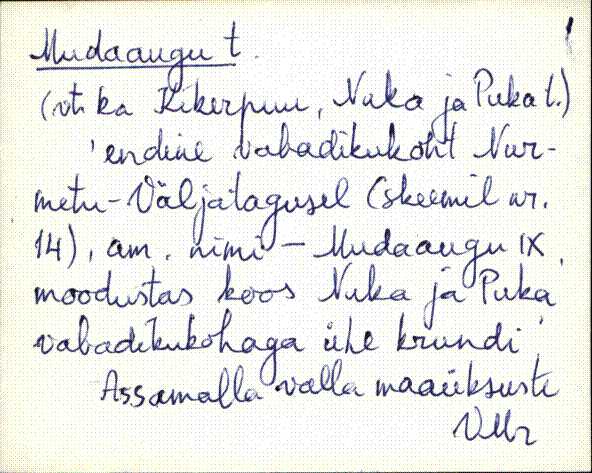 Mudaaugu t.
(vt. ka Kikerpuu, Nuka ja Puka t.)
'endine vabadikukoht Nur-
metu-Väljatagusel (skeemil nr.
14), am. nimi - Mudaaugu IX,
moodustas koos Nuka ja Puka
vabadikukohaga ühe krundi'
Assamalla valla maaüksuste